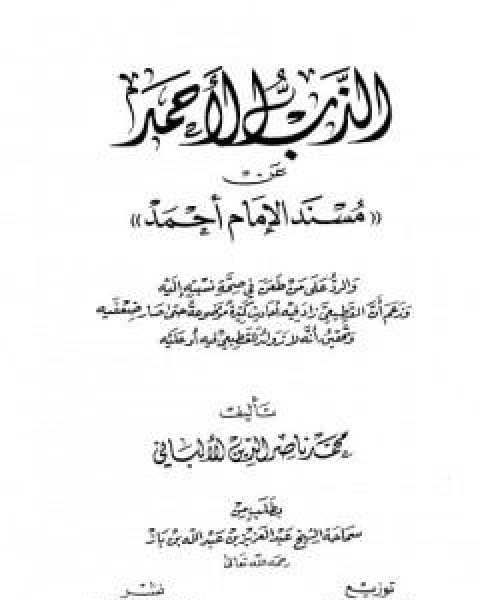 الذَّبُّ الأَحْمَد
عَنْ
«مُسْنَدِ الإِمَامِ أَحْمَدَ»
وَالرَّدُّ عَلَى مَنْ طَعَنَ فِي صِحَّةِ نِسْبَتِهِ إِلَيْهِ
وَزَعَمَ أَنَّ القَطِيعِيَّ زَادَ فِيهِ أَحَادِيثَ كَثِيرَةً مَوْضُوعَةً حَتَّى صَارَ ضِعْفَيْهِ
وَتَحْقِيقُ أَنَّهُ لَا زَوَائِدَ لِلقَطِيعِيِّ فِيهِ أَوْ عَلَيْهِ
تأليف
محمد ناصر الدين الألباني
بطلب من
سماحة الشيخ عبد العزيز بن عبد الله بن باز
رحمه الله تعالى
توزيع نشر